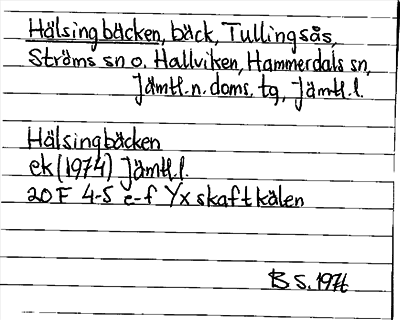 Hälsingbäcken, bäck, Tullingsås,
Ströms sn o. Hallviken, Hammerdals sn,
Jämtl. n. doms. tg, Jämtl. l.
Hälsingbäcken
ek (1974) Jämtl. l.
20 F 4-5 e-f Yxskaftkälen
BS. 1976